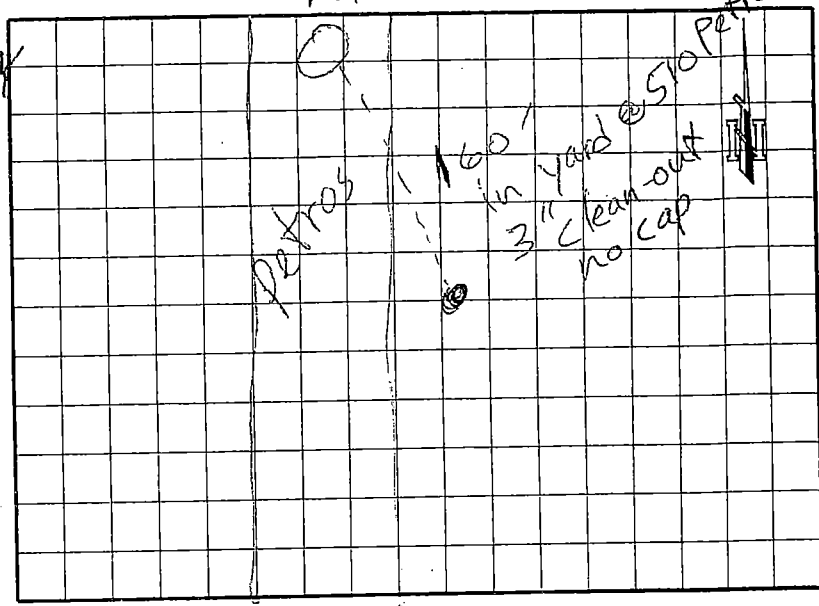 Petros
160'
in yard @ 510
3" clean-out
no cap